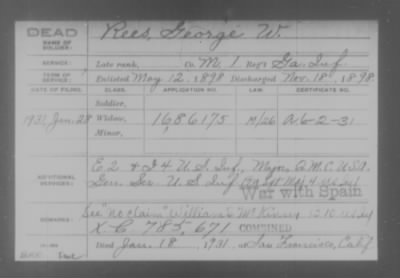 DEAD
NAME OF SOLDIER:
Rees, George W.
SERVICE:
Late rank, Co. M, 1 Reg't Ga. Inf.
TERM OF SERVICE:
Enlisted May 12, 1898 Discharged Nov. 18, 1898
DATE OF FILING. CLASS. APPLICATION NO. LAW. CERTIFICATE NO.
Soldier,
1931 Jan. 28 Widow, 1686175 A-6-2-31
Minor,
ADDITIONAL SERVICES:
E 2 & I 4 U.S. Inf., Major Q.M.C. U.S.A.
Gen. Ser. U.S. Inf
War with Spain
REMARKS:
See "no claim" William
X-C 785,671 COMBINED
Died Jan. 18, 1931, at San Francisco, Calif